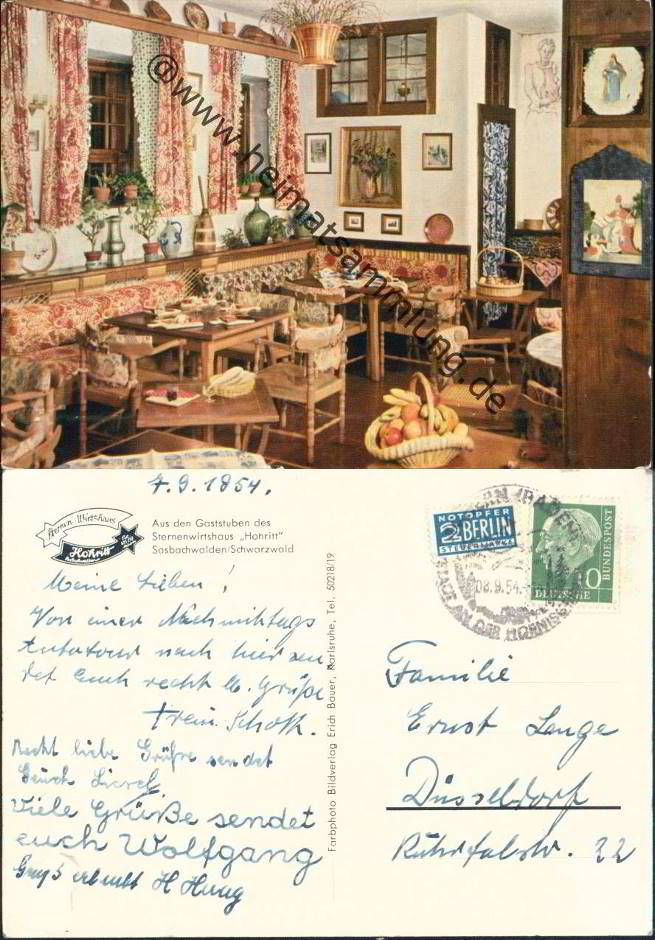 @www.heimatsammlung.de
7.9.1954.
Sternen-Wirtshaus
Hohritt
Aus den Gaststuben des
Sternenwirtshaus „Hohritt"
Sasbachwalden/Schwarzwald
NOTOPFER
2 BERLIN
STEUERMARKE
DEUTSCHE
BUNDESPOST
10
08.9.54
STADT AN DER HORNISGRINDE
Meine Lieben!
Von einer Nachmittags
Autotour nach hier sen-
det Euch recht lb. Grüße
Recht liebe Grüße sendet
Euch
Viele Grüße sendet
euch Wolfgang
Gruß erlaubt H Haug
Farbphoto Bildverlag Erich Bauer, Karlsruhe, Tel. 50218/19
Familie
Ernst Lange
Düsseldorf
Ruhrtalstr. 22